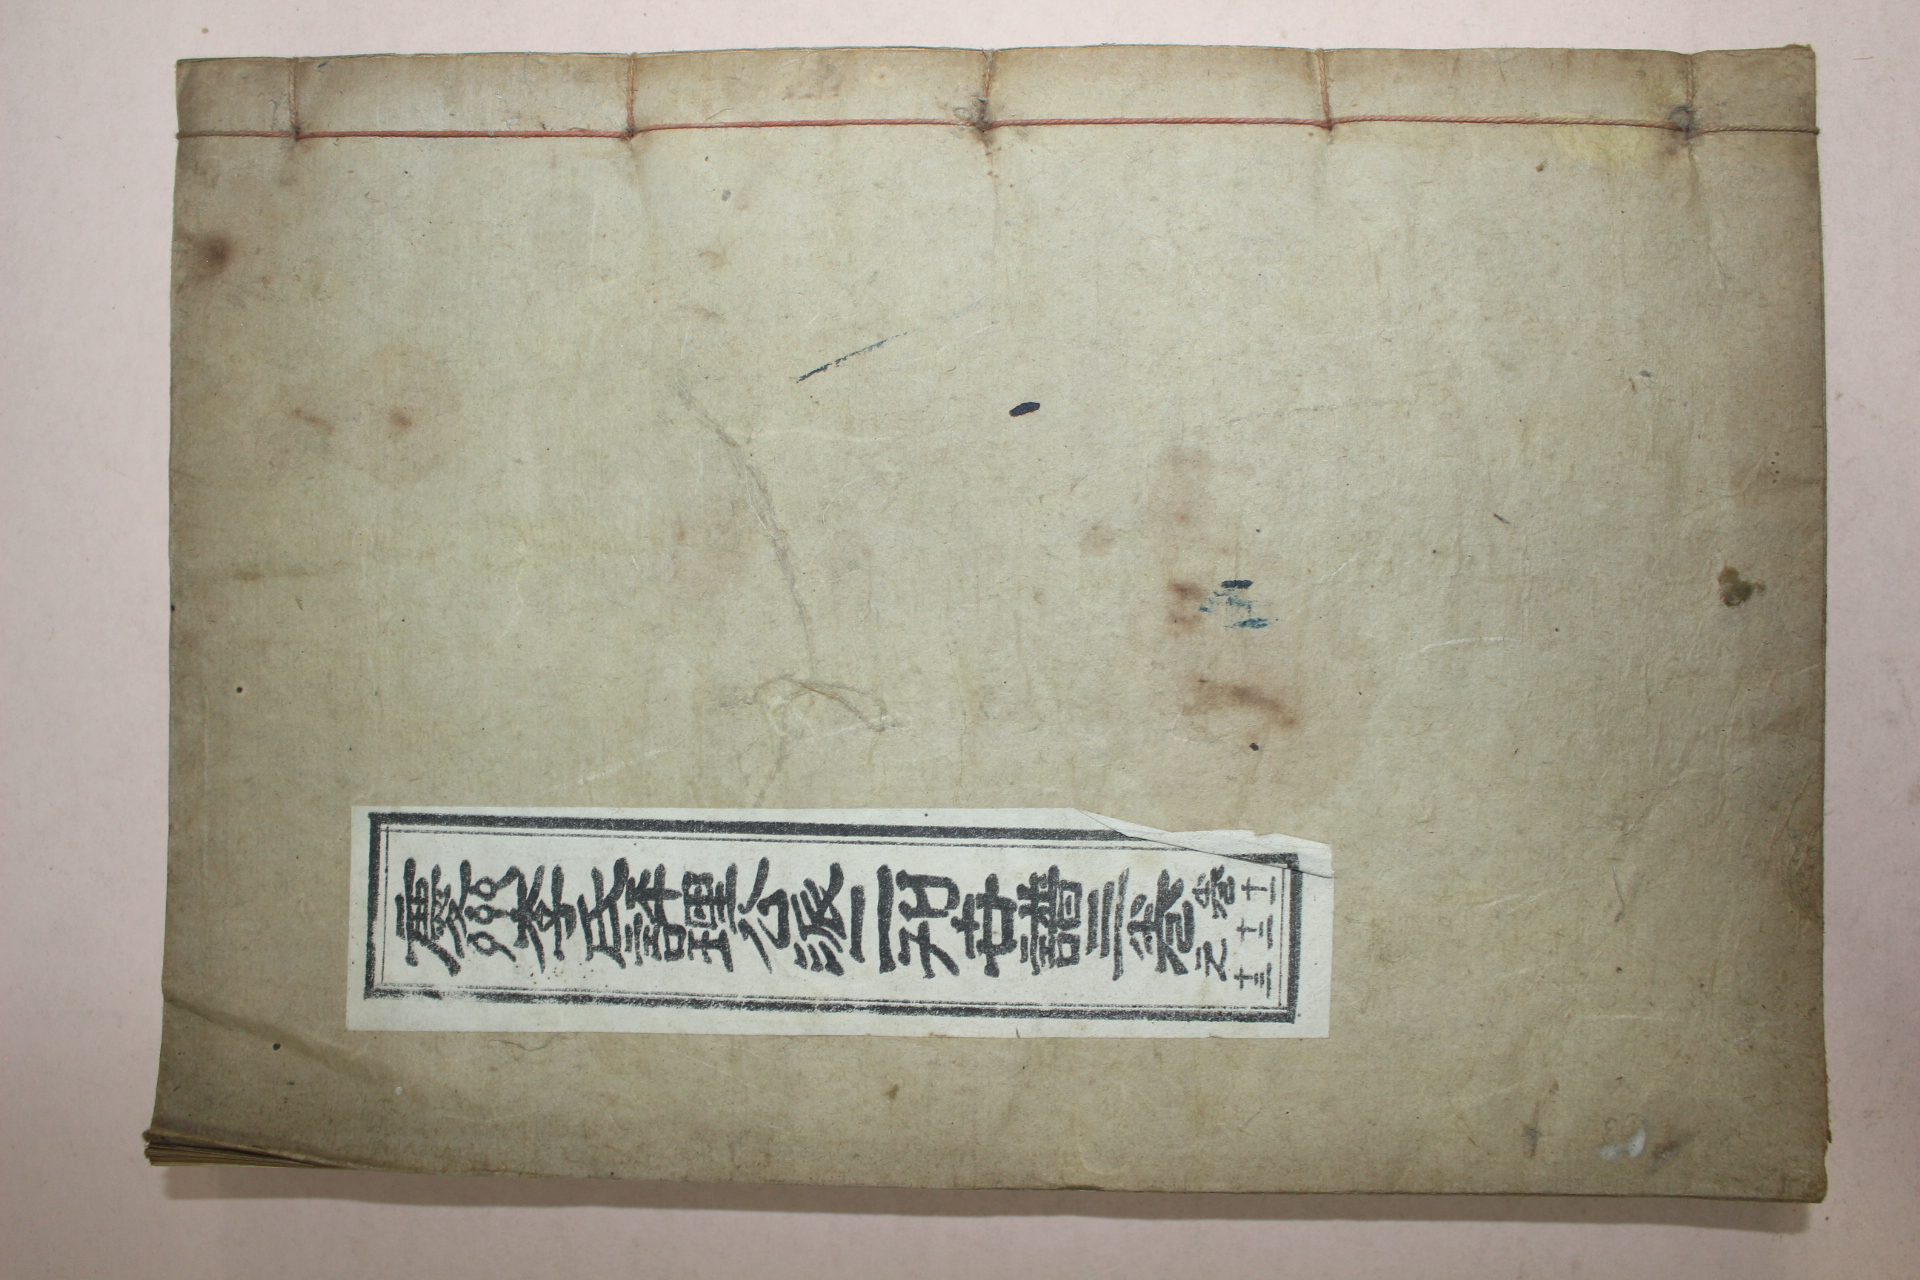 慶州李氏評理公派二刊世譜三卷
卷之
十一
十二
十三